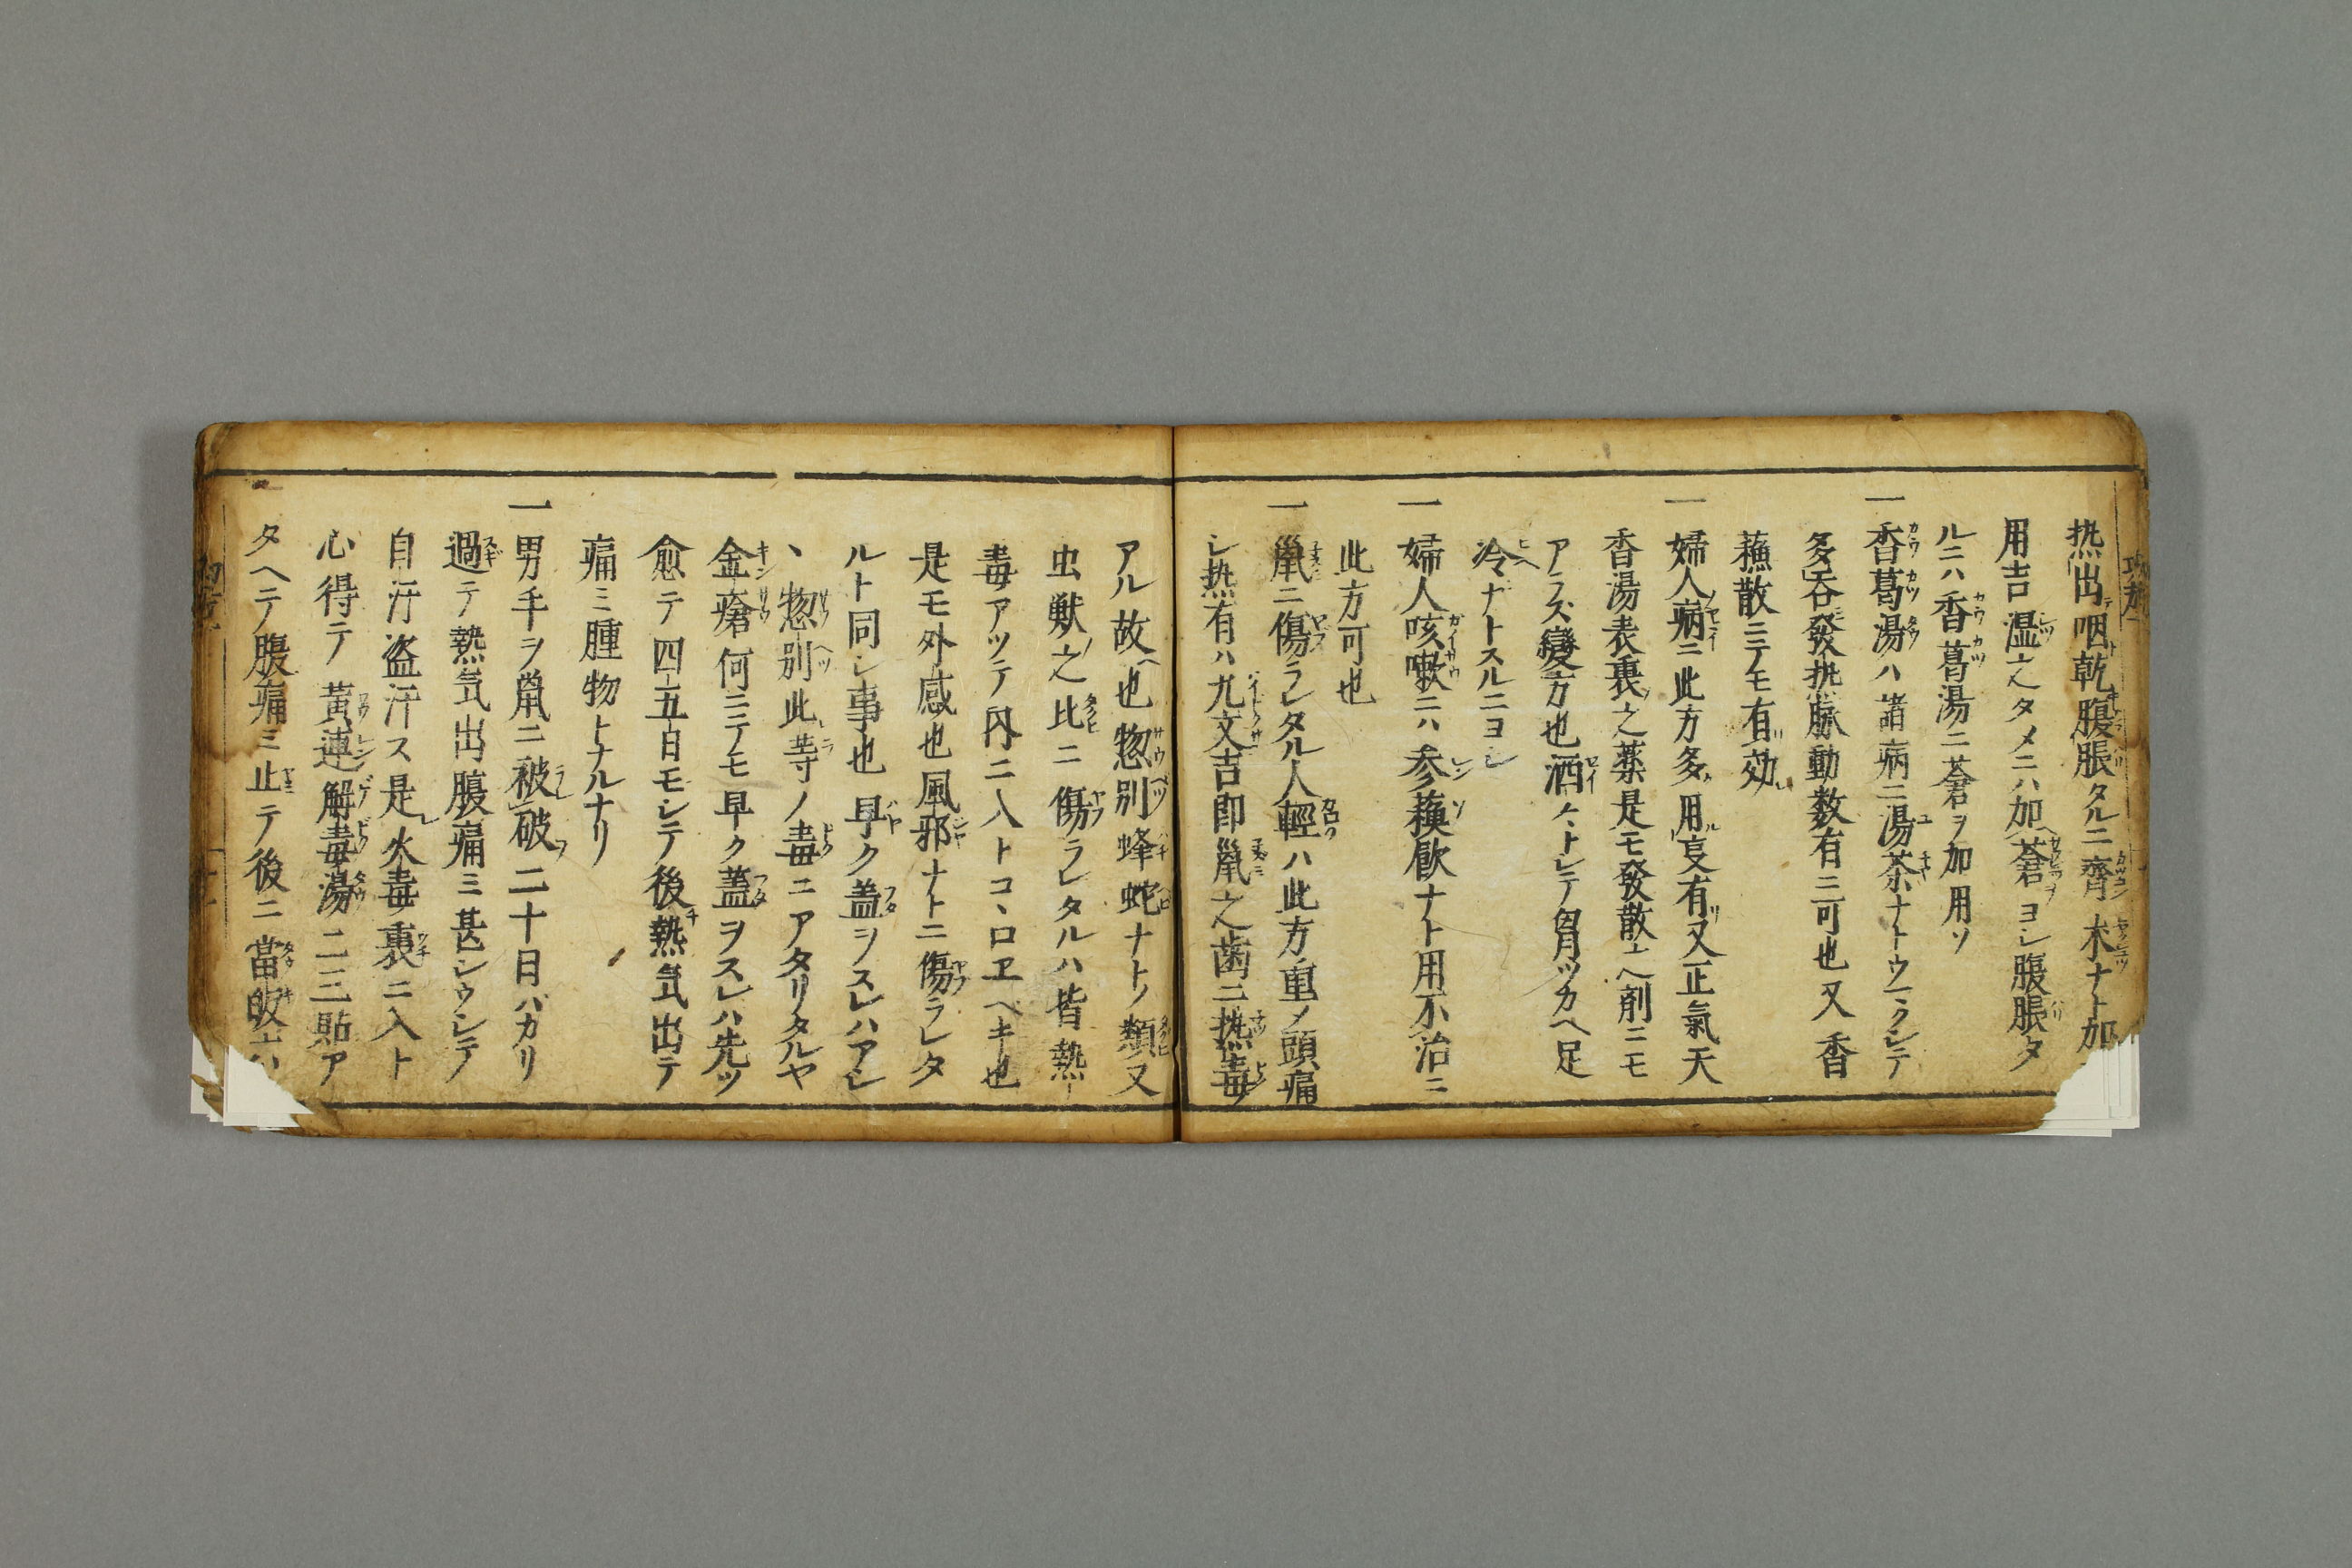 热出咽乾腹脹タルニ齊木ナト加
用吉湿之タメニハ加蒼ヨシ腹脹タ
ルニハ香葛湯ニ蒼ヲ加用ソ
一香葛湯ハ諸病ニ湯茶ナトウラクシテ
多呑發热脉動数有ニ可也又香
蘓散ニテモ有効
一婦人病ニ此方多用㕝有又正氣天
香湯表裏之薬是モ發散ニヘ剤ニモ
アラズ變方也洒々トシテ胃ツカヘ足
冷ナトスルニヨシ
一婦人咳嗽ニハ参蘓飲ナト用不治ニ
此方可也
一鼠ニ傷ラレタル人輕ハ此方重メ頭痛
シ热有ハ九文吉即鼠之歯ニ热毒
アル故也惣別蜂蛇ナトノ類又
虫獣之比ニ傷ラレタルハ皆熱
毒アツテ内ニ入トコヽロヱヘキ也
是モ外感也風邪ナトニ傷ラレタ
ルト同シ事也早ク蓋ヲスレハアシ
ヽ惣別此等ノ毒ニアタリタルヤ
金瘡何ニテモ早ク蓋ヲスレハ先ツ
愈テ四五日モシテ後熱気出テ
痛ミ腫物トナルナリ
一男手ヲ鼠ニ被破二十日バカリ
過テ熱気出腹痛ミ甚シウシテ
自汗盗汗ス是火毒裏ニ入ト
心得テ黄連解毒湯二三貼ア
タヘテ腹痛ミ止テ後ニ當皈